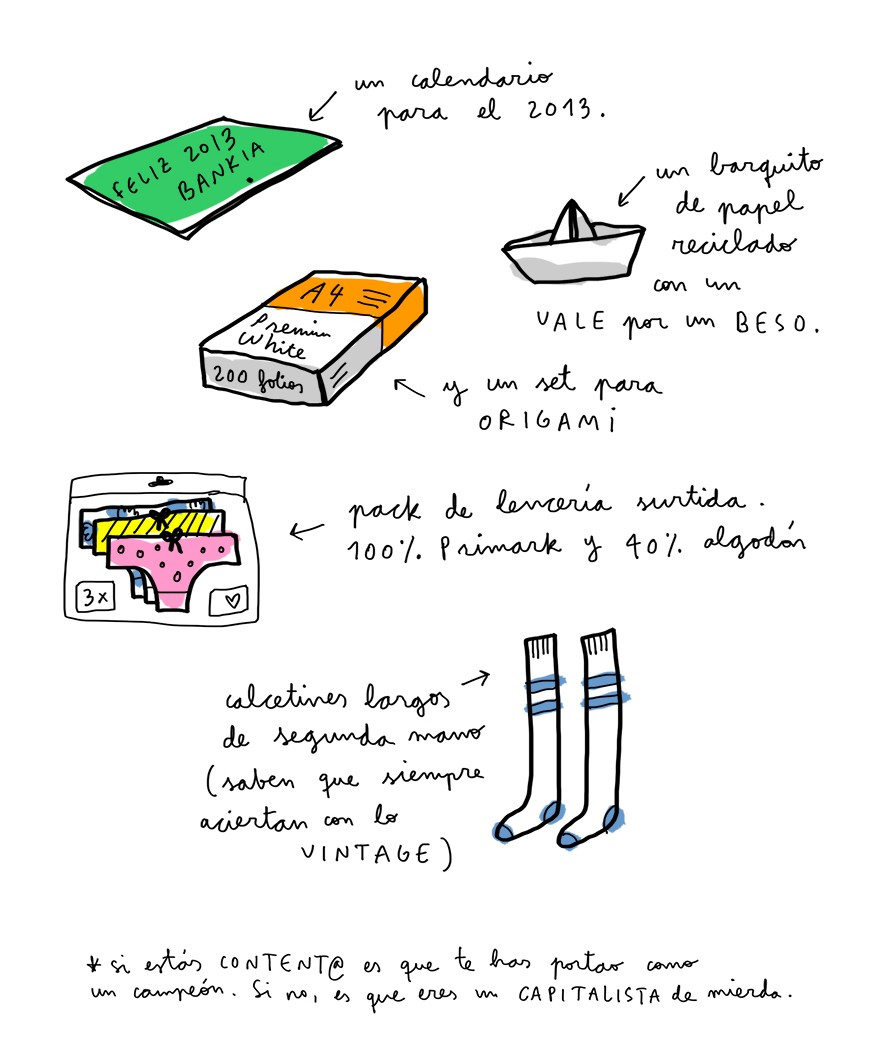 un calendario
para el 2013.
FELIZ 2013
BANKIA
un barquito
de papel
reciclado
con un
VALE por un BESO.
A4
Premium
White
200 folios
y un set para
ORIGAMI
pack de lencería surtida.
100% Primark y 40% algodón
3x
calcetines largos
de segunda mano
(saben que siempre
aciertan con lo
VINTAGE)
* si estás CONTENT@ es que te has portao como
un campeón. Si no, es que eres un CAPITALISTA de mierda.